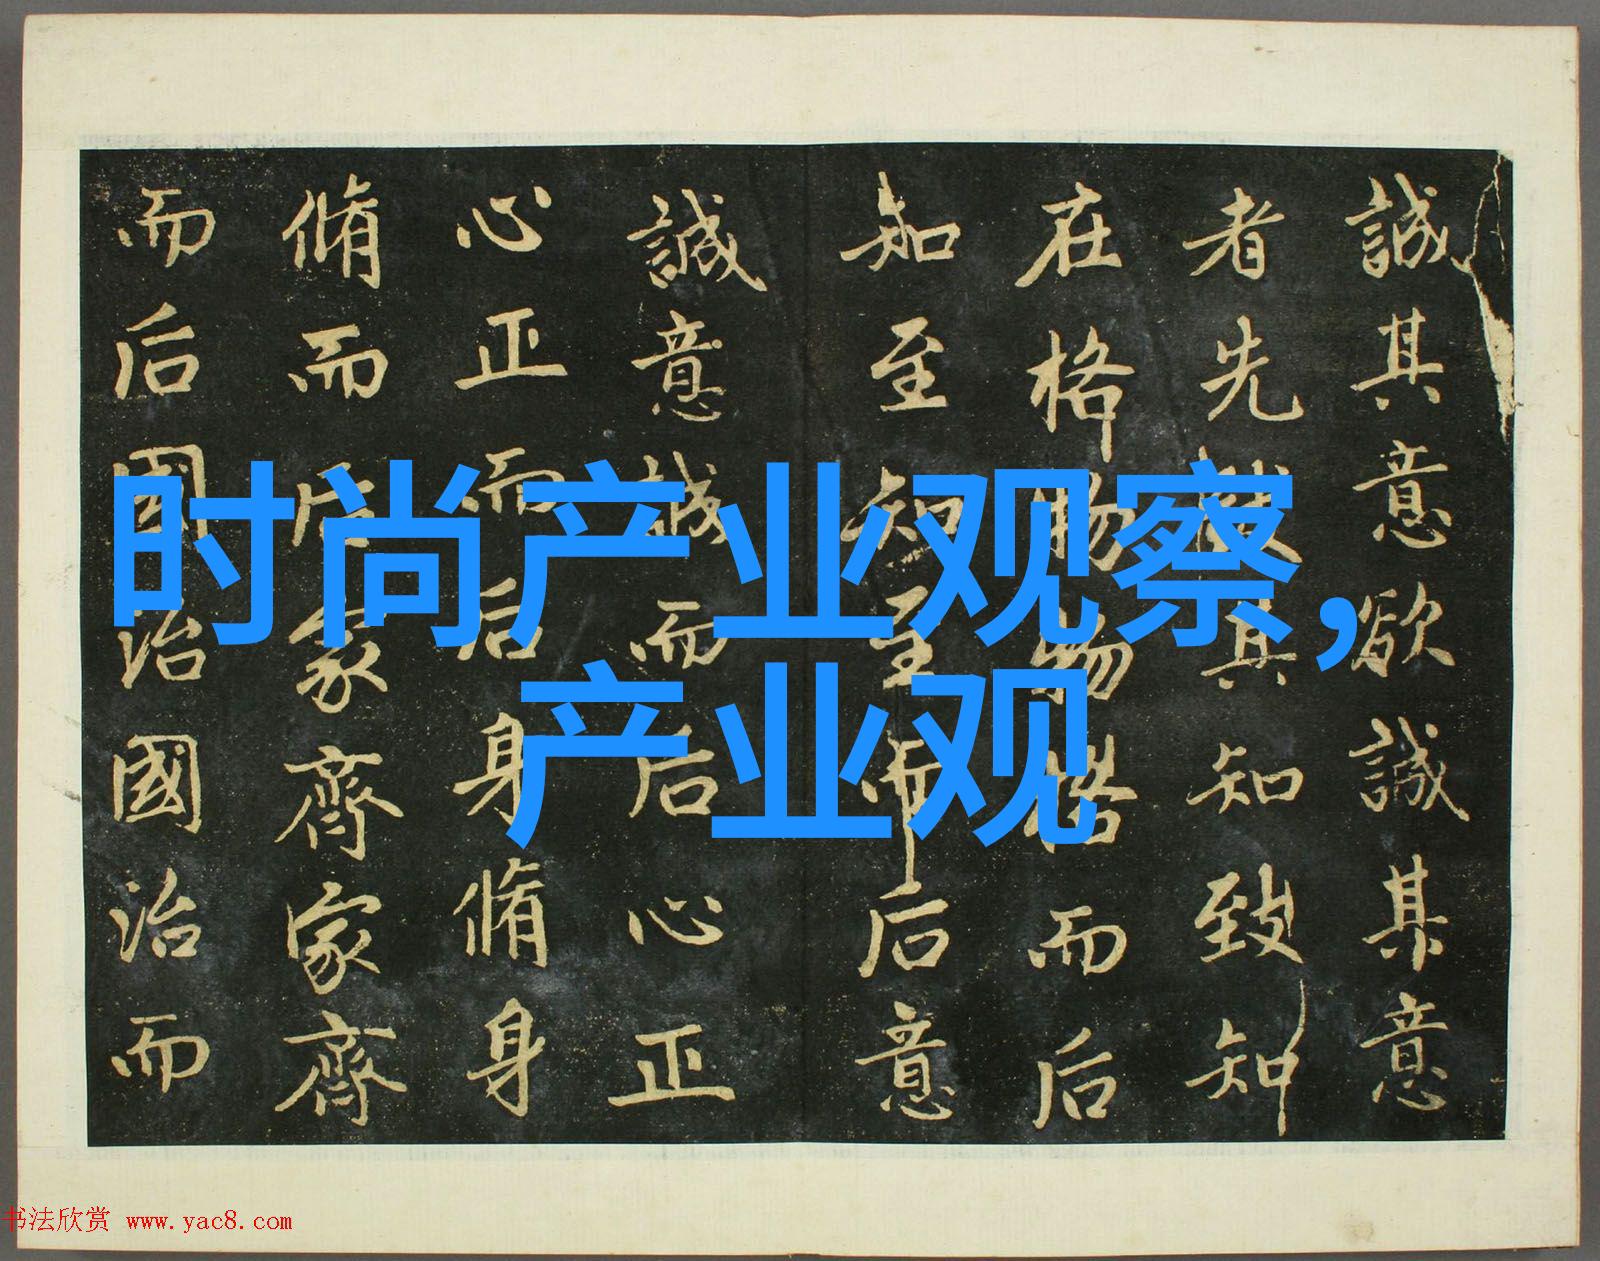 誠其意欲誠其意
者先致其知致知
在格物物格而后
知至知至而后意
誠意誠而后心正
心正而后身脩身
脩而后家齊家齊
而后國治國治而
时尚产业观察,
产业观
书法欣赏 www.yac8.com